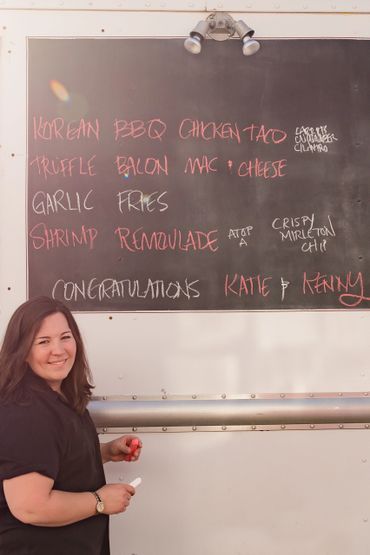 KOREAN BBQ CHICKEN TACO CARROTS CUCUMBER CILANTRO
TRUFFLE BACON MAC & CHEESE
GARLIC FRIES
SHRIMP REMOULADE ATOP A CRISPY MIRLETON CHIP
CONGRATULATIONS KATIE & KENNY